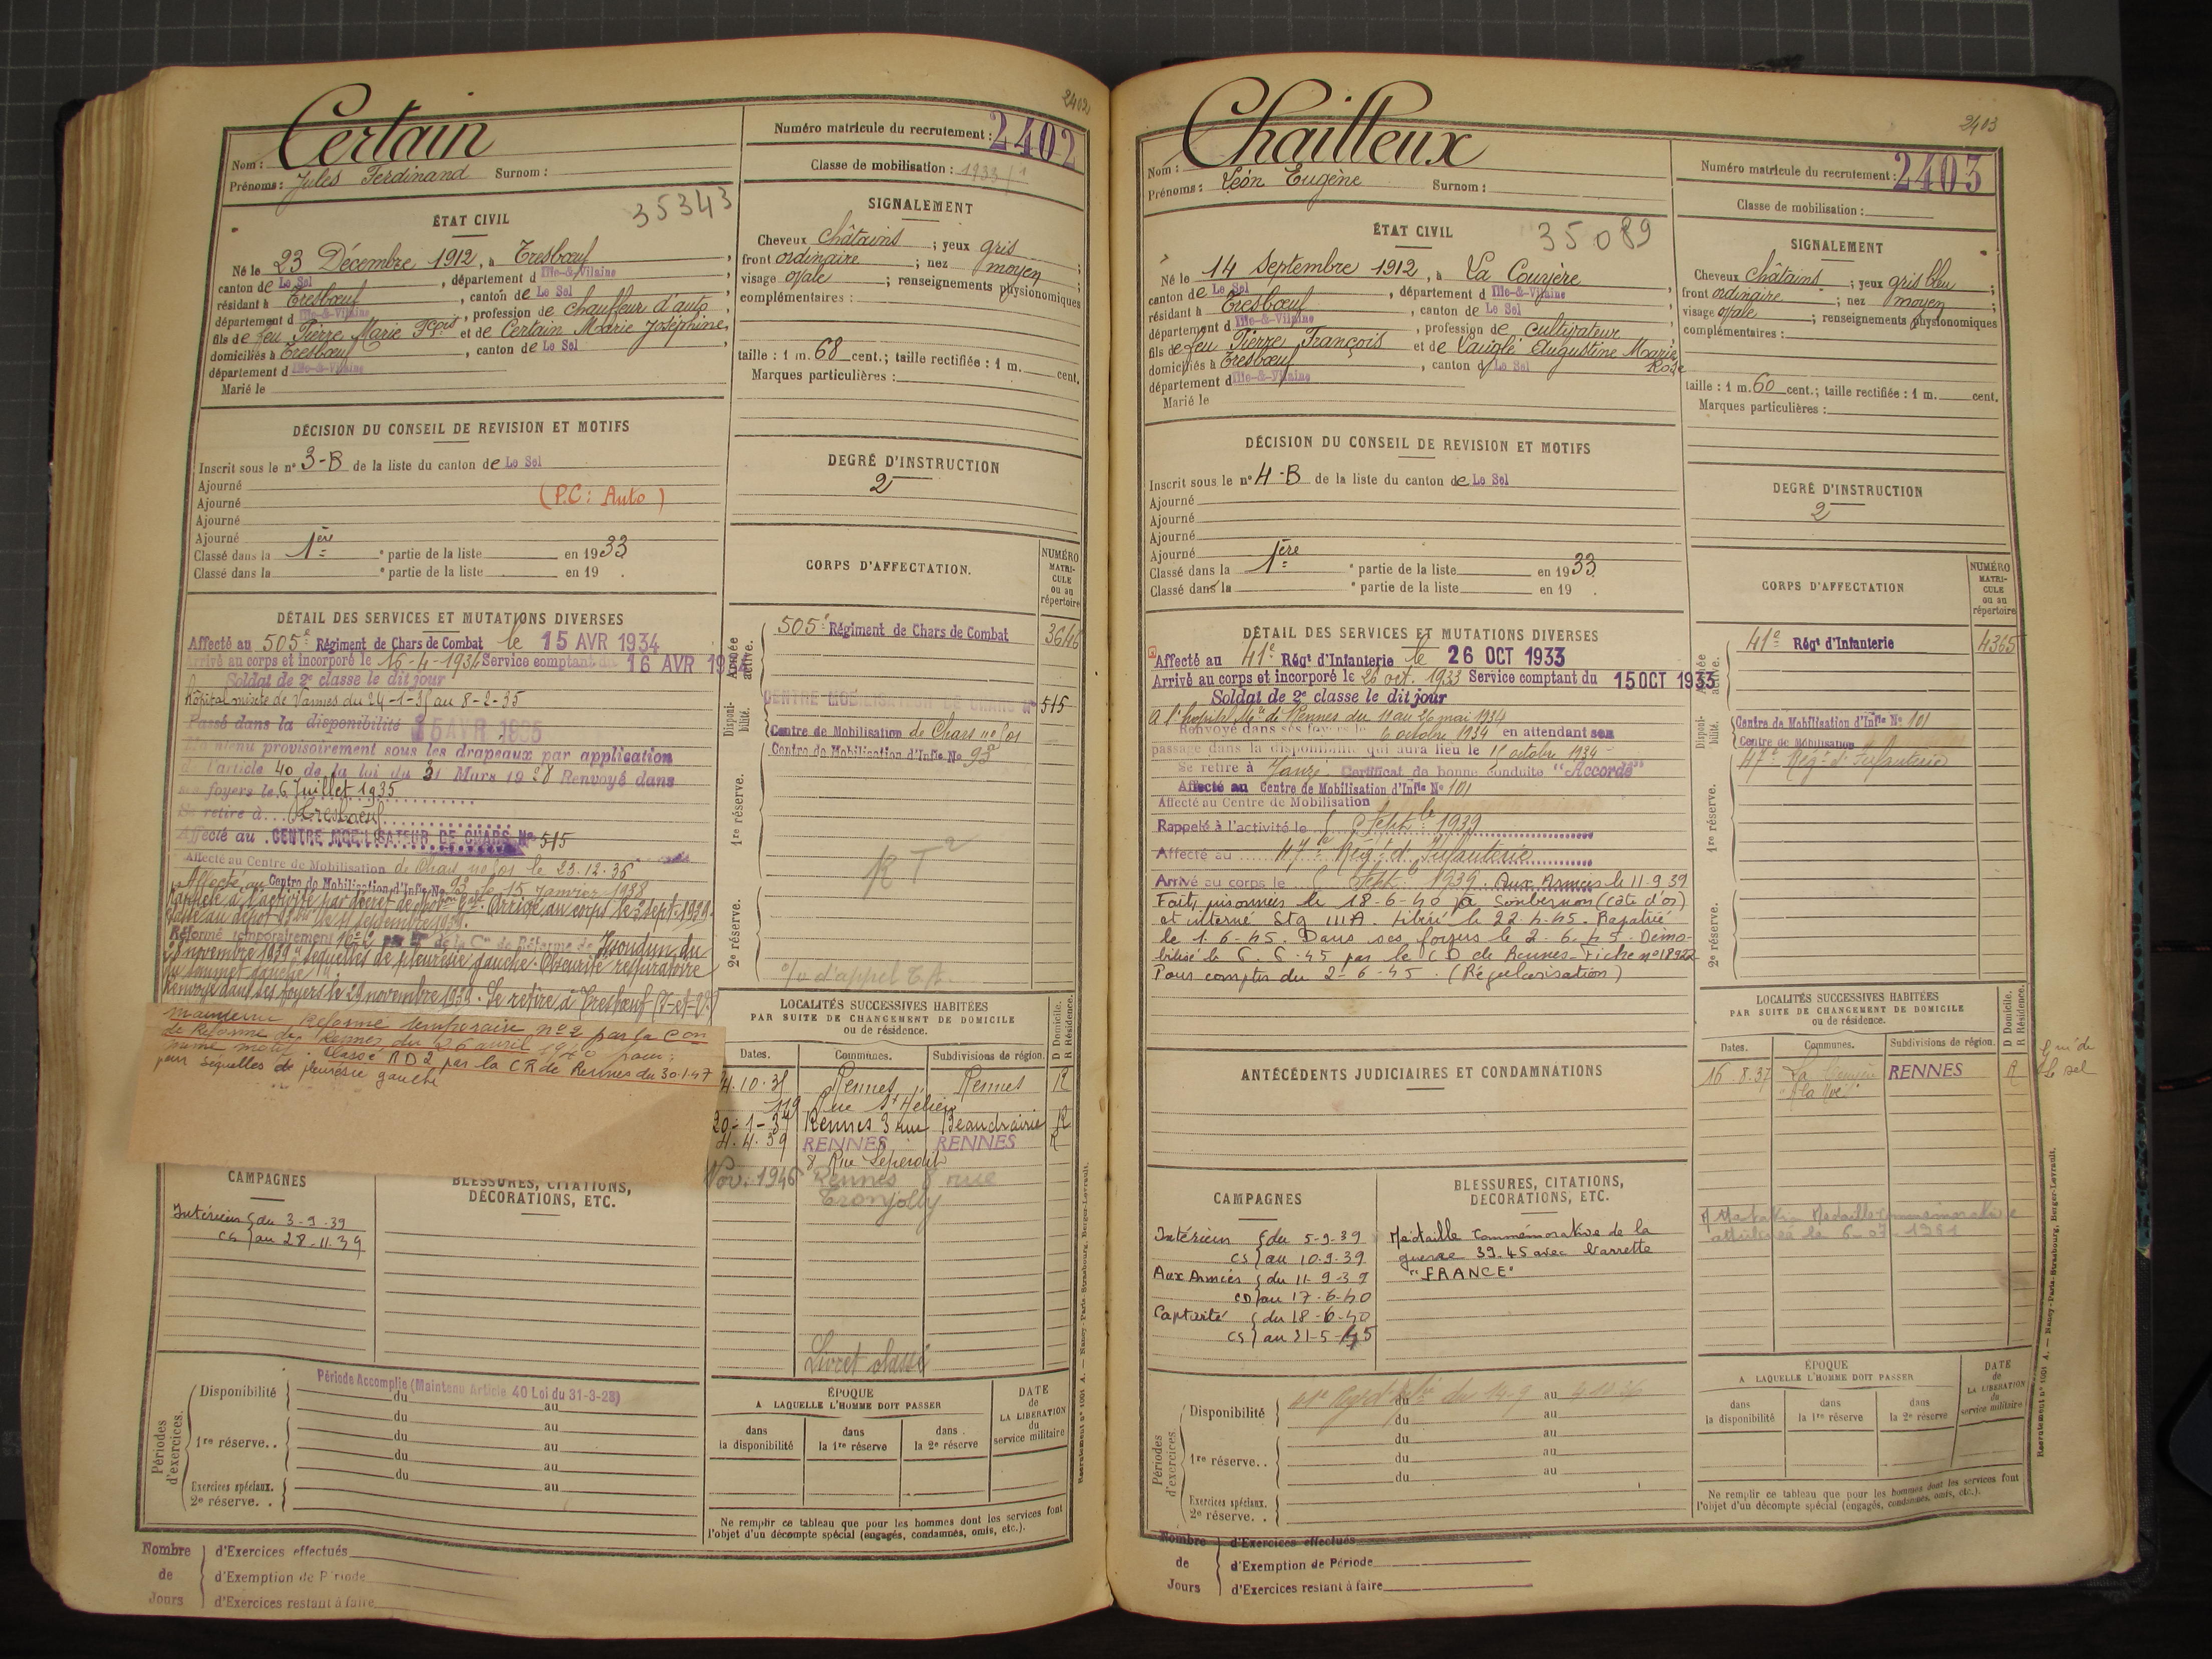 2402
Certain
Nom :
Prénoms : Jules Ferdinand Surnom :
Numéro matricule du recrutement : 2402
Classe de mobilisation : 1933/1
35343
ÉTAT CIVIL
Né le 23 Décembre 1912, à Tresbœuf,
canton de Le Sel, département d Ille-&-Vilaine
résidant à Tresbœuf, canton de Le Sel
département d Ille-&-Vilaine, profession de chauffeur d'auto
fils de feu Pierre Marie Fçois et de Certain Marie Joséphine,
domiciliés à Tresbœuf, canton de Le Sel
département d Ille-&-Vilaine
Marié le
SIGNALEMENT
Cheveux châtains ; yeux gris ;
front ordinaire ; nez moyen ;
visage ovale ; renseignements physionomiques
complémentaires :
taille : 1 m. 68 cent.; taille rectifiée : 1 m. cent.
Marques particulières :
DÉCISION DU CONSEIL DE REVISION ET MOTIFS
Inscrit sous le n° 3-B de la liste du canton de Le Sel
Ajourné
Ajourné (P.C: Auto)
Ajourné
Ajourné
Classé dans la 1ère partie de la liste en 1933
Classé dans la e partie de la liste en 19 .
DEGRÉ D'INSTRUCTION
2
DÉTAIL DES SERVICES ET MUTATIONS DIVERSES
Affecté au 505e Régiment de Chars de Combat le 15 AVR 1934
Arrivé au corps et incorporé le 16-4-1934 Service comptant du 16 AVR 19
Soldat de 2e classe le dit jour
Hôpital mixte de Vannes du 24-1-35 au 8-2-35
Passé dans la disponibilité 15 AVR 1935
Maintenu provisoirement sous les drapeaux par application
de l'article 40 de la loi du 31 Mars 1928 Renvoyé dans
ses foyers le 6 Juillet 1935
Se retire à Tresbœuf
Affecté au CENTRE MOBILISATEUR DE CHARS No 515
Affecté au Centre de Mobilisation de Chars no 501 le 23.12.35
Affecté au Centre de Mobilisation d'Infie No 93 le 15 Janvier 1938
Rappelé à l'activité par décret de Arrivé au corps le 3 sept. 1939.
Passé au dépôt le 11 septembre 1939.
Réformé temporairement No 2 par de la Con de Réforme de Issoudun du
28 novembre 1939 "Séquelles de pleurésie gauche. Obscurité respiratoire
du sommet gauche".
Renvoyé dans ses foyers le 29 novembre 1939. Se retire à Tresbœuf (I-et-V)
Maintenu Réformé temporaire no 2 par la Con
de Réforme de Rennes du 26 avril 1940 pour:
même motif. Classé RD2 par la CR de Rennes du 30.1.47
pour séquelles de pleurésie gauche
CORPS D'AFFECTATION.
NUMÉRO MATRICULE ou au répertoire
Armée active.
505e Régiment de Chars de Combat 3646
Disponibilité.
CENTRE MOBILISATION DE CHARS No 515
Centre de Mobilisation de Chars no 501
Centre de Mobilisation d'Infie No 93
1re réserve.
RT2
2e réserve.
o/v d'appel
LOCALITÉS SUCCESSIVES HABITÉES
PAR SUITE DE CHANGEMENT DE DOMICILE
ou de résidence.
D Domicile. R Résidence.
Dates. Communes. Subdivisions de région.
4.10.35 Rennes Rennes R
119 Rue St Hélier
20-1-37 Rennes 3 rue Beaudrairie R
4.4.39 RENNES RENNES R
8 Rue Leperdit
Nov. 1946 Rennes 8 rue
Tronjolly
Livret classé
CAMPAGNES
Intérieur { du 3-9-39
CS } au 28-11-39
BLESSURES, CITATIONS,
DÉCORATIONS, ETC.
Périodes d'exercices.
Période Accomplie (Maintenu Article 40 Loi du 31-3-28)
Disponibilité du au
du au
1re réserve. . du au
du au
du au
Exercices spéciaux.
2e réserve. .
ÉPOQUE
A LAQUELLE L'HOMME DOIT PASSER
DATE de LA LIBÉRATION du service militaire
dans la disponibilité
dans la 1re réserve
dans la 2e réserve
Ne remplir ce tableau que pour les hommes dont les services font
l'objet d'un décompte spécial (engagés, condamnés, omis, etc.).
Recrutement n° 1001 A. — Nancy-Paris-Strasbourg, Berger-Levrault.
Nombre de Jours
d'Exercices effectués
d'Exemption de Période
d'Exercices restant à faire
2403
Chailleux
Nom :
Prénoms : Léon Eugène Surnom :
Numéro matricule du recrutement : 2403
Classe de mobilisation :
35089
ÉTAT CIVIL
Né le 14 Septembre 1912, à La Couyère,
canton de Le Sel, département d Ille-&-Vilaine
résidant à Tresbœuf, canton de Le Sel
département d Ille-&-Vilaine, profession de cultivateur
fils de feu Pierre François et de Vauglé Augustine Marie Rose
domiciliés à Tresbœuf, canton d Le Sel
département d Ille-&-Vilaine
Marié le
SIGNALEMENT
Cheveux châtains ; yeux gris bleu ;
front ordinaire ; nez moyen ;
visage ovale ; renseignements physionomiques
complémentaires :
taille : 1 m. 60 cent.; taille rectifiée : 1 m. cent.
Marques particulières :
DÉCISION DU CONSEIL DE REVISION ET MOTIFS
Inscrit sous le n° 4-B de la liste du canton de Le Sel
Ajourné
Ajourné
Ajourné
Ajourné
Classé dans la 1ère partie de la liste en 1933
Classé dans la e partie de la liste en 19 .
DEGRÉ D'INSTRUCTION
2
DÉTAIL DES SERVICES ET MUTATIONS DIVERSES
Affecté au 41e Régt d'Infanterie le 26 OCT 1933
Arrivé au corps et incorporé le 26 oct. 1933 Service comptant du 15 OCT 1933
Soldat de 2e classe le dit jour
A l'hopital Mre de Rennes du 11 au 26 mai 1934
Renvoyé dans ses foyers le 6 octobre 1934 en attendant son
passage dans la disponibilité qui aura lieu le 15 octobre 1934
Se retire à Janzé Certificat de bonne conduite "Accordé"
Affecté au Centre de Mobilisation d'Infie No 101
Affecté au Centre de Mobilisation
Rappelé à l'activité le 5 Septbre 1939
Affecté au 47e Régt d'Infanterie
Arrivé au corps le 5 Septb 1939. Aux Armées le 11-9-39
Fait prisonnier le 18-6-40 à Sombernon (Côte d'or)
et interné Stg III A. Libéré le 22.4.45. Rapatrié
le 1-6-45. Dans ses foyers le 2-6-45. Démo-
bilisé le 6.6.45 par le CD de Rennes. Fiche no 18922
Pour compter du 2-6-45. (Régularisation)
CORPS D'AFFECTATION
NUMÉRO MATRICULE ou au répertoire
Armée active.
41e Régt d'Infanterie 4365
Disponibilité.
Centre de Mobilisation d'Infie No 101
Centre de Mobilisation
47e Régt d'Infanterie
1re réserve.
2e réserve.
ANTÉCÉDENTS JUDICIAIRES ET CONDAMNATIONS
LOCALITÉS SUCCESSIVES HABITÉES
PAR SUITE DE CHANGEMENT DE DOMICILE
ou de résidence.
D Domicile. R Résidence.
Dates. Communes. Subdivisions de région.
16.8.37 La Couyère RENNES R
Médaille Commémorative
attribuée le
CAMPAGNES
Intérieur { du 5-9-39
CS } au 10-9-39
Aux Armées { du 11-9-39
CD } au 17-6-40
Captivité { du 18-6-40
CS } au 31-5-45
BLESSURES, CITATIONS,
DÉCORATIONS, ETC.
Médaille Commémorative de la
guerre 39.45 avec barrette
"FRANCE"
Périodes d'exercices.
Disponibilité du au
du au
1re réserve. . du au
du au
du au
Exercices spéciaux.
2e réserve. .
ÉPOQUE
A LAQUELLE L'HOMME DOIT PASSER
DATE de LA LIBÉRATION du service militaire
dans la disponibilité
dans la 1re réserve
dans la 2e réserve
Ne remplir ce tableau que pour les hommes dont les services font
l'objet d'un décompte spécial (engagés, condamnés, omis, etc.).
Recrutement n° 1001 A. — Nancy-Paris-Strasbourg, Berger-Levrault.
Nombre de Jours
d'Exercices effectués
d'Exemption de Période
d'Exercices restant à faire